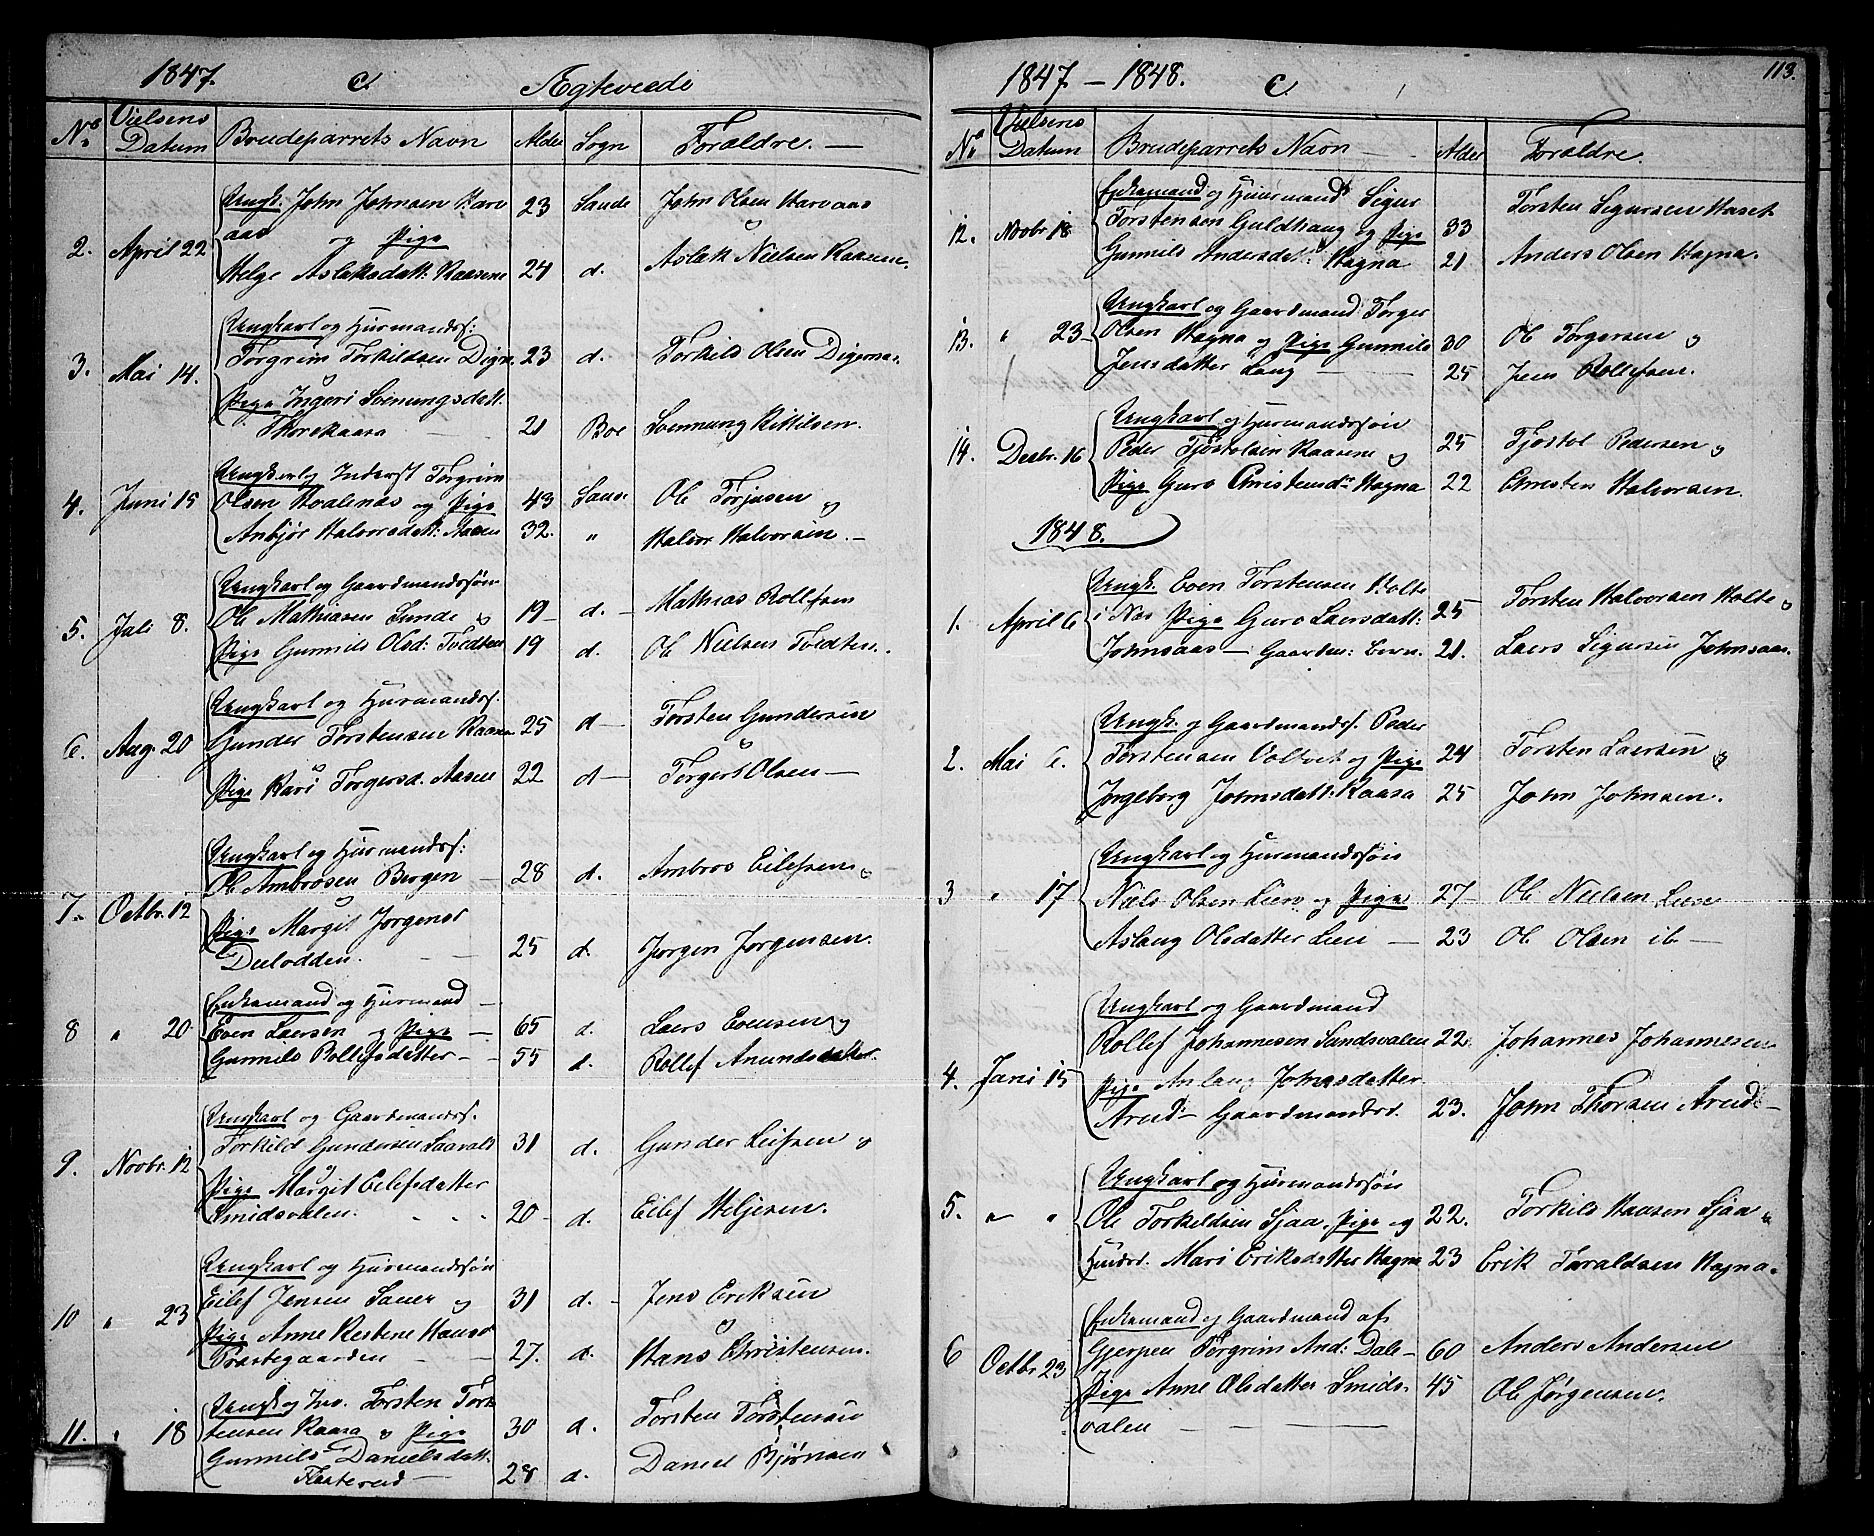 1847. C. Ægteviede
No. Vielsens Datum Brudeparrets Navn Alder Sogn Forældre. —
Ungk. John Johnsen Harv 23 Saude John Olsen Harvaas
aas og Pige og
2. April 22
Helge Aslaksdatt: Raasene 24 d. Aslak Nielsen Raasene.
Ungkarl og Huusmandss:
Torgrim Torkildsen Digr. 23 d. Torkild Olsen Digernæs.
3. Mai 14. og
Pige Ingeri Svenungsdatt.
Thorekaasa 21 Boe Svennung Kittilsen.
Ungkarl og Inderst Torgrim
4. Juni 15 Olsen Hvalenas og Pige 43 Saud. Ole Torjusen og
Anbjør Halvorsdatt: Aasen 32. " Halvor Halvorsen. —
Ungkarl og Gaardmandssøn
Ole Mathiasen Lunde og 19 d. Mathias Rollefsen
5. Juli 8.
Pige Gunnild Olsd: Tvedten 19 d. Ole Nielsen Tvedten.
Ungkarl og Huusmandss.
Gunder Torstensen Raasa 25 d — Torsten Gundersen
6. Aug. 20 og
Pige Kari Torgersd. Aasen 22 d — Torger Olsen —
Ungkarl og Huusmandss:
Ole Ambrosen Bergen — 28 d. Ambros Eilefsen og
7. Octbr. 12 og
Pige Margit Jørgensd
Deelodden. 25 d. Jørgen Jørgensen.
Enkemand og Huusmand —
8 " 20 Even Laersen og Pige — 65 d. Laers Evensen og
Gunnild Rollefsdatter — 55 d. Rollef Anundsdatter.
Ungkarl og Gaardmandss.
Torkild Gundersen Laavalt 31 d. Gunder Leifsen og
9. Novbr. 12 og
Pige Margit Eilefsdatter
Smidsvalen. 20 d. Eilef Heljesen.
Ungkarl og Huusmandssøn
Eilef Jensen Sauer og 31 d. Jens Eriksen
10 " 23 og
Pige Anne Kestene Hansd
Præstegaarden 27. d. Hans Christensen.
Ungk og Ind. Torsten Tors
11. " 18 tensen Raasa og Pige 30 d. Torsten Torstensen
Gunnild Danielsdatt.
28 d. Daniel Bjørnsen
1847 — 1848. C. 113.
No. Vielsens Datum Brudeparrets Navn — Alder Forældre.
Enkemand og Huusmand Sigur
12. Novbr. 18 Torstensen Guldhaug og Pige 33 Torsten Sigursen Haset
Gunnild Andersdat: Hagna 21 Anders Olsen Hagna.
Ungkarl og Gaardmand Torger
13. " 23 Olsen Hagna og Pige Gunnild 30 Ole Torgersen og
Jensdatter Haug — 25 Jens Rollefsen.
Ungkarl og Huusmandssøn
14. Decbr. 16 Peder Tjøstolsen Raasene og 25 Tjøstol Pedersen og
Pige Guro Christensdr Hagna 22 Christen Halvorsen.
1848.
Ungk. Even Torstensen Holte
1. April 6 i Næs Pige Guro Laersdatt: 25 Torsten Halvorsen Holte og
Johnsaas — Gaardm: Børn. 21. Laers Sigursen Johnsaas.
Ungk. og Gaardmandss. Peder
2. Mai 6. Torstensen og Pige 24 Torsten Laersen og
Ingeborg Johnsdatt. Raasa 25 John Johnsen.
Ungkarl og Huusmandssøn
3 " 17 Niels Olsen Liene og Pige 27 Ole Nielsen Liene
Aslaug Olsdatter Lien — 23 Ole Olsen ib —
Ungkarl og Gaardmand
Rollef Johannesen Sandsvalen 22. Johannes Johannesen
4. Juni 15 Pige Aslaug Johnsdatter
Arud — Gaardmandsd. 23. John Thorsen Arud —
Ungkarl og Huusmandssøn
5. " " Ole Torkildsen Sjaa, Pige og 22. Torkild Hansen Sjaa og
Huusd. Mari Eriksdatter Hagna 23 Erik Taraldsen Hagna.
Enkemand og Gaardmand af
6 Octbr. 23 Gjerpen Torgrim And: Dale — 60 Anders Andersen
Pige Anne Olsdatter Smids- 45 Ole Jørgensen.
valen —